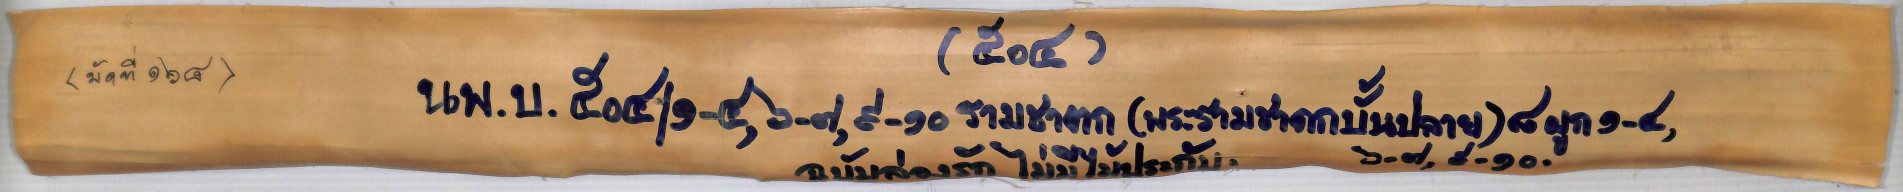 (๕๐๔)
(มัดที่ ๑๖๘)
นพ.บ. ๕๐๔/๑-๔, ๖-๗, ๙-๑๐ รามชาตก (พระรามชาตกบั้นปลาย) ๘ ผูก ๑-๔,
๖-๗, ๙-๑๐.
ฉบับล่องรัก ไม่มีไม้ประกับ.